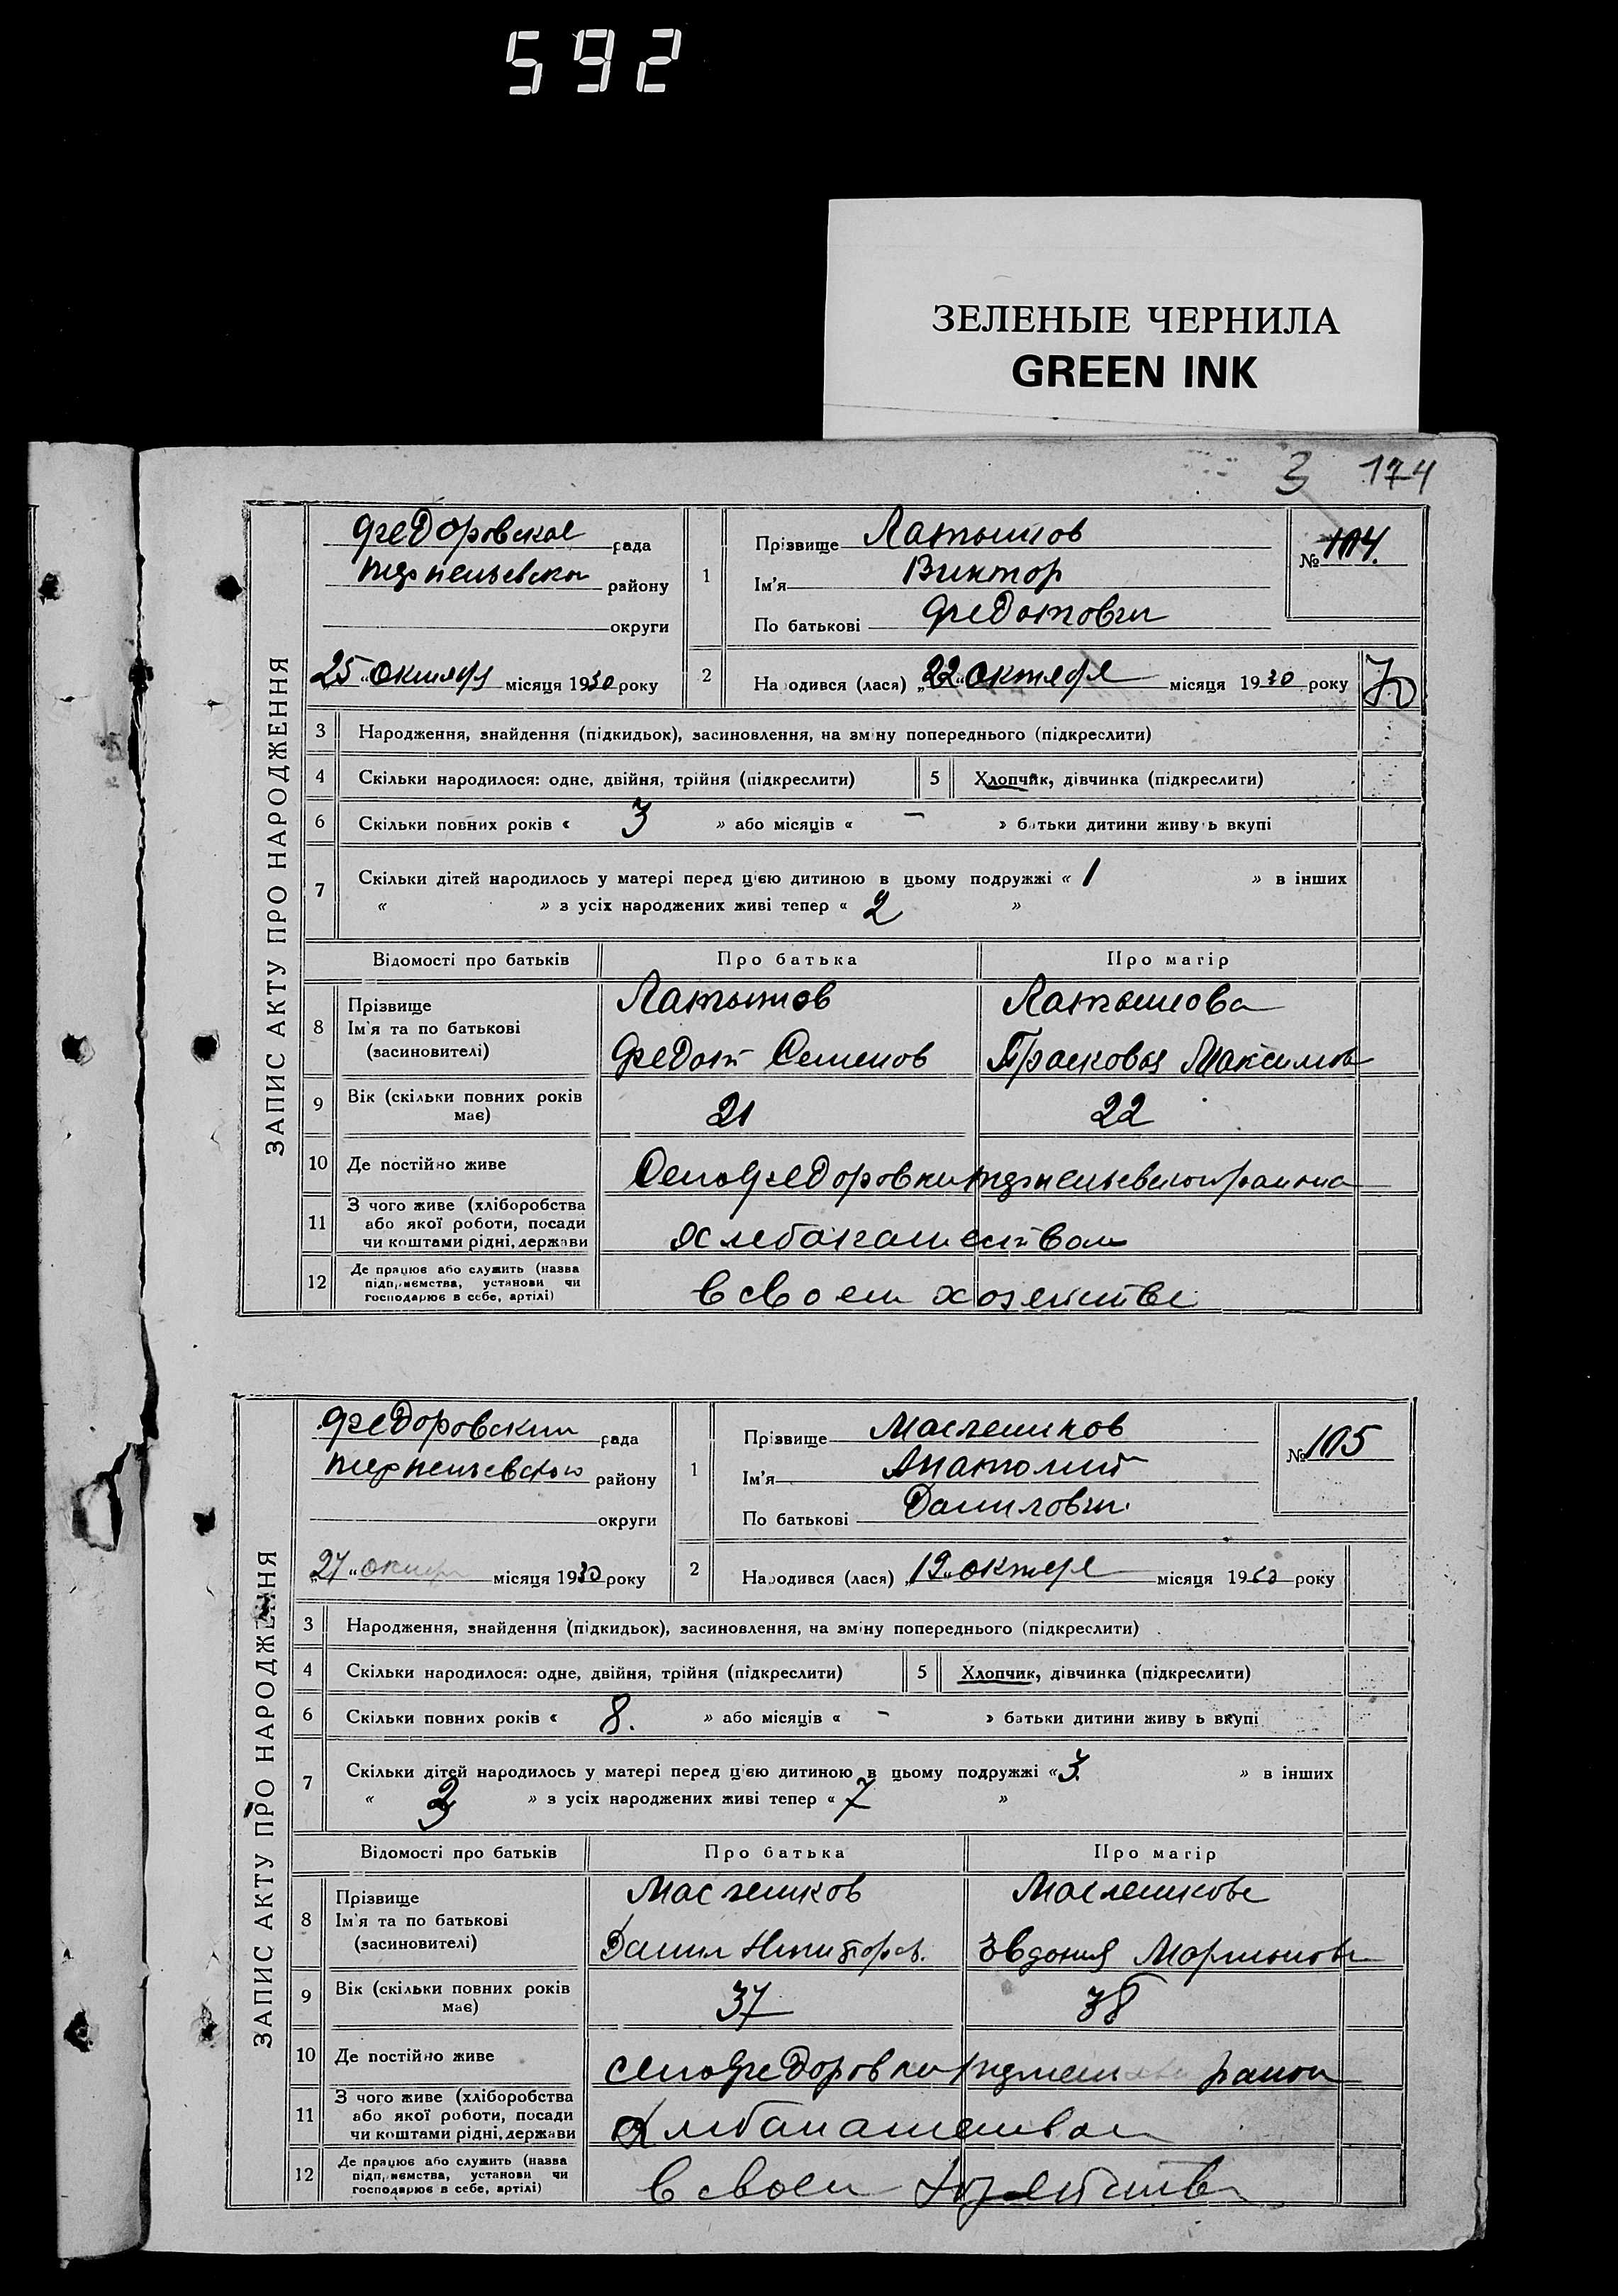 592
ЗЕЛЕНЫЕ ЧЕРНИЛА
GREEN INK
3 174
ЗАПИС АКТУ ПРО НАРОДЖЕННЯ
Федоровское рада
району
округи
1
Прізвище Латышов
Ім'я Виктор
По батькові Федотович
№ 104.
25 октября місяця 1930 року
2
Народився (лася) „22“ октября місяця 1930 року
3 Народження, знайдення (підкидьок), засиновлення, на зміну попереднього (підкреслити)
4 Скільки народилося: одне, двійня, трійня (підкреслити) 5 Хлопчик, дівчинка (підкреслити)
6 Скільки повних років « 3 » або місяців « – » батьки дитини живуть вкупі
7 Скільки дітей народилось у матері перед цією дитиною в цьому подружжі « 1 » в інших
« » з усіх народжених живі тепер « 2 »
Відомості про батьків Про батька Про матір
8 Прізвище Латышов Латышова
Ім'я та по батькові
(засновителі) Федот Семенов Прасковья Максимов
9 Вік (скільки повних років має) 21 22
10 Де постійно живе Село Федоровки района
11 З чого живе (хліборобства
або якої роботи, посади
чи коштами рідні, держави
12 Де працює або служить (назва
підприємства, установи чи
господарює в себе, артілі) в своем хозяйстве
ЗАПИС АКТУ ПРО НАРОДЖЕННЯ
Федоровский рада
району
округи
1
Прізвище Маслеников
Ім'я Анатолий
По батькові Данилович
№ 105
„27“ октября місяця 1930 року
2
Народився (лася) „19“ октября місяця 1930 року
3 Народження, знайдення (підкидьок), засиновлення, на зміну попереднього (підкреслити)
4 Скільки народилося: одне, двійня, трійня (підкреслити) 5 Хлопчик, дівчинка (підкреслити)
6 Скільки повних років « 8. » або місяців « – » батьки дитини живуть вкупі
7 Скільки дітей народилось у матері перед цією дитиною в цьому подружжі « 3. » в інших
« » з усіх народжених живі тепер « 7 »
Відомості про батьків Про батька Про матір
8 Прізвище Маслеников Масленикова
Ім'я та по батькові
(засиновителі) Данил Никифоров. Мартынов
9 Вік (скільки повних років має) 37 38
10 Де постійно живе село Федоровки район
11 З чого живе (хліборобства
або якої роботи, посади
чи коштами рідні, держави
12 Де працює або служить (назва
підприємства, установи чи
господарює в себе, артілі) в своем хозяйстве